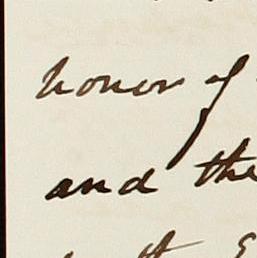 honor of
and the